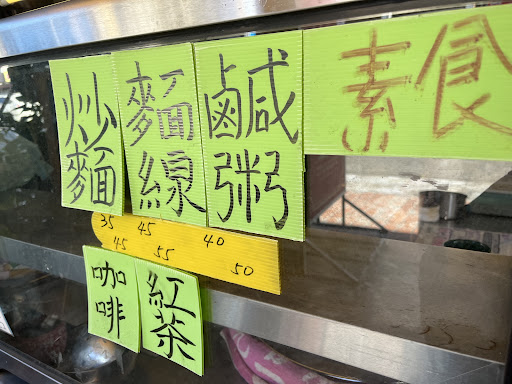 炒麵
麵線
鹹粥
素食
35 45 40
45 55 50
咖啡
紅茶